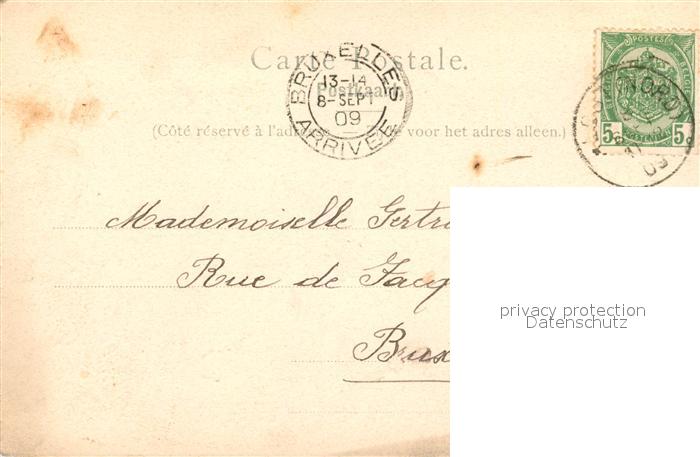 Carte Postale.
Postkaart
(Côté réservé à l'adre voor het adres alleen.)
BRUXELLES
13-14
8-SEPT
09
ARRIVEE
POSTES
5c 5c
POSTERIJEN
NORD
11
09
Mademoiselle Gertr
Rue de Jacq
Brux
privacy protection
Datenschutz